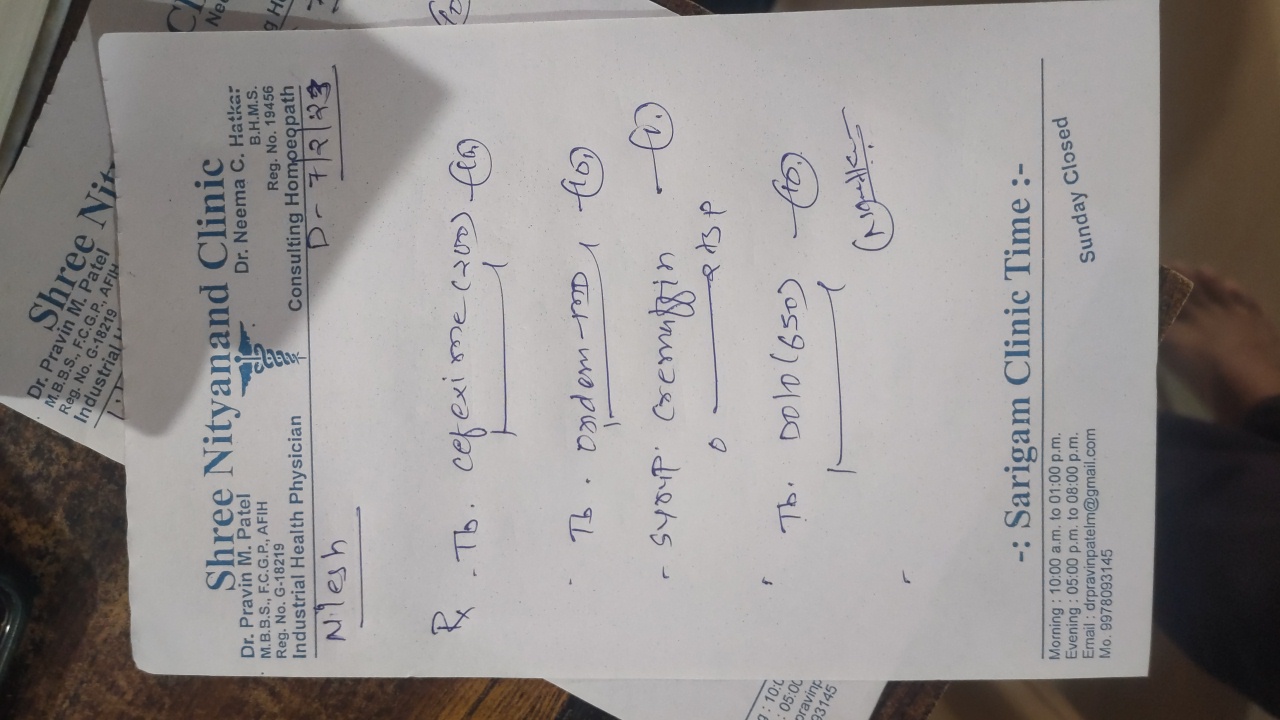 Shree Nit
Dr. Pravin M. Patel
M.B.B.S., F.C.G.P., AFIH
Reg. No. G-18219
Industrial H
Shree Nityanand Clinic
Dr. Pravin M. Patel
M.B.B.S., F.C.G.P., AFIH
Reg. No. G-18219
Industrial Health Physician
Dr. Neema C. Hatkar
B.H.M.S.
Reg. No. 19456
Consulting Homoeopath
Nilesh D- 7/2/23
Rx - Tb. cefexime (200) - 10,
Tb. ondem-MD - 10,
- Syrup. Cremaffin - 1.
0 — 2 tsp
Tb. Dolo (650) - 10.
-: Sarigam Clinic Time :-
Morning : 10:00 a.m. to 01:00 p.m.
Evening : 05:00 p.m. to 08:00 p.m.
Email : drpravinpatelm@gmail.com
Mo. 9978093145
Sunday Closed